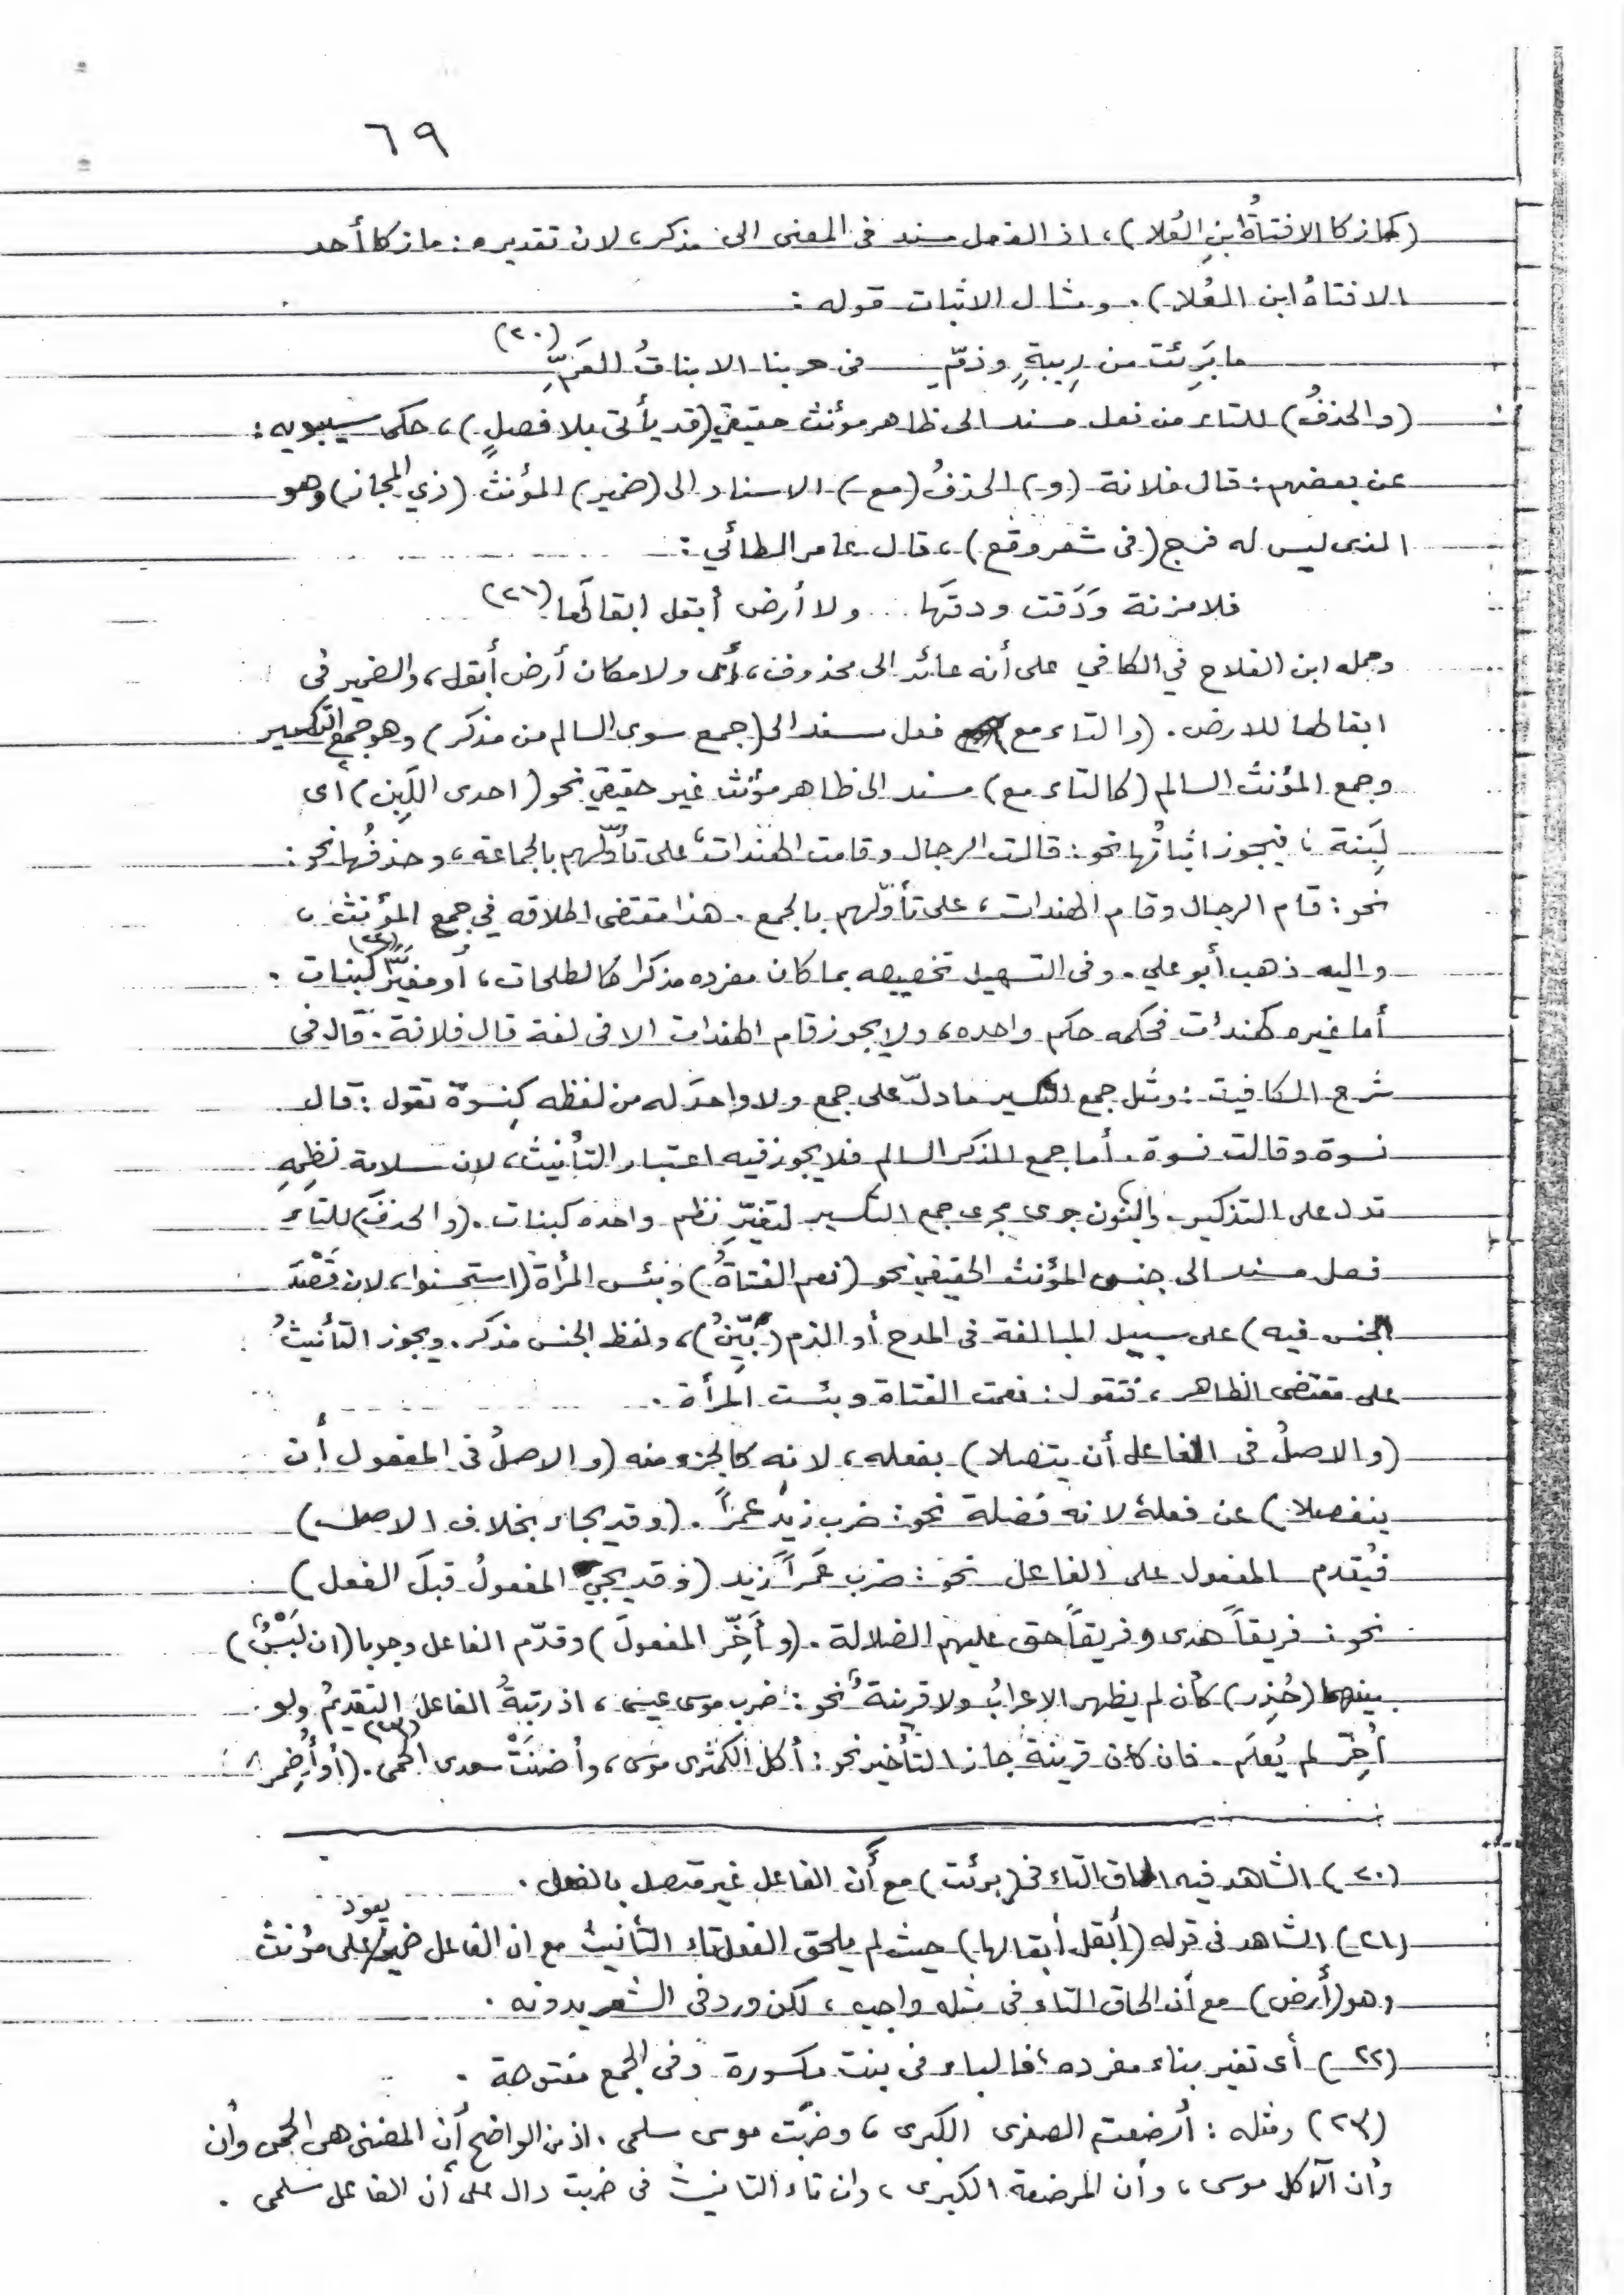 ٦٩
(كمازكا الافتاةُ ابنِ العُلا)، اذ الفعل مسند فى المعنى الى مذكر، لان تقديره: مازكا أحد
الافتاةُ ابن العُلا). ومثال الاثبات قوله:
ما بَرِئت من رِيبةٍ وذمّ فى حربنا الابناتُ العَمِّ (٢٠)
(والحذفُ) للتاء من فعل مسند الى ظاهر مؤنث حقيقي (قد يأتى بلا فصلٍ)، حكى سيبويه:
عن بعضهم: قال فلانة (و) الحذفُ (مع) الاسناد الى (ضمير) المؤنث (ذي المجاز) وهو
الذى ليس له فرج (فى شعر وقع)، قال عامر الطائي:
فلا مزنة وَدَقت ودقَها ... ولا أرض أبقل ابقالَها (٢١)
وحمله ابن الفلاح في الكافي على أنه عائد الى محذوف، أى ولا مكان أرض أبقل، والضمير فى
ابقالها للارض. (والتاء مع فعل مسند الى (جمع سوى السالم من مذكر) وهو جمع التكسير
وجمع المؤنث السالم (كالتاء مع) مسند الى ظاهر مؤنث غير حقيقي نحو (احدى اللَبِن) أى
لَبِنة، فيجوز اثباتُها نحو: قالت الرجال وقامت الهندات، على تأوّلهم بالجماعة، وحذفُها نحو:
نحو: قام الرجال وقام الهندات، على تأوّلهم بالجمع. هذا مقتضى اطلاقه في جمع المؤنث،
واليه ذهب أبو علي. وفى التسهيل تخصيصه بما كان مفرده مذكرا كالطلحات، أو مغيَّر كبنات (٢٢).
أما غيره كهندات فحكمه حكم واحده، ولا يجوز قام الهندات الا فى لغة قال فلانة. قال فى
شرح الكافية: ومثل جمع التكسير ما دلّ على جمع ولا واحدَ له من لفظه كنِسوة تقول: قال
نسوة وقالت نسوة. أما جمع المذكر السالم فلا يجوز فيه اعتبار التأنيث، لان سلامة نظمِهِ
تدل على التذكير. والبنون جرى مجرى جمع التكسير لتغيّرِ نظم واحده كبنات. (والحذفَ) للتاء
فعل مسند الى جنس المؤنث الحقيقي نحو (نعم الفتاةُ) وبئس المرأة (استحسنوا، لان قَصْدَ
الجنس فيه) على سبيل المبالغة فى المدح أو الذم (بيّنُ)، ولفظ الجنس مذكر. ويجوز التأنيثُ
على مقتضى الظاهر، فتقول: نعمت الفتاة وبئست المرأة.
(والاصلُ فى الفاعل أن يتصلا) بفعله، لانه كالجزء منه (والاصلُ فى المفعول أن
ينفصلا) عن فعله لانه فَضلة نحو: ضرب زيدٌ عمراً. (وقد يجاء بخلاف الاصل)
فيُقدم المفعول على الفاعل نحو: ضرب عَمراً زيد (وقد يجي المفعولُ قبلَ الفعل)
نحو: فريقاً هدى وفريقاً حق عليهم الضلالة. (وأَخِّر المفعولَ) وقدّم الفاعل وجوبا (ان لَبْسٌ)
بينهما (حُذِر) كأن لم يظهر الاعرابُ ولا قرينة، نحو: ضرب موسى عيسى، اذ رتبةُ الفاعل التقديمُ ولو
أُخِّر لم يُعلَم. فان كان قرينة جاز التأخير نحو: أكل الكمّثرى موسى، وأضنَتْ سعدى الحمى (٢٣). (أو أُضمر
(٢٠) الشاهد فيه الحاق التاء فى (برئت) مع أن الفاعل غير متصل بالفعل.
(٢١) الشاهد فى قوله (أبقل أبقالها) حيث لم يلحق الفعل تاء التأنيث مع ان الفاعل ضمير يعود على مؤنث
وهو (أرض) مع أن الحاق التاء فى مثله واجب، لكن ورد فى الشعر بدونه.
(٢٢) أى تغير بناء مفرده، فالباء فى بنت مكسورة وفى الجمع مفتوحة.
(٢٣) ومثله: أرضعت الصغرى الكبرى، وضربت موسى سلمى. اذ من الواضح أن المضنى هى الحمى وأن
وأن الآكل موسى، وأن المرضعة الكبرى، وان تاء التانيث فى ضربت دال على أن الفاعل سلمى.